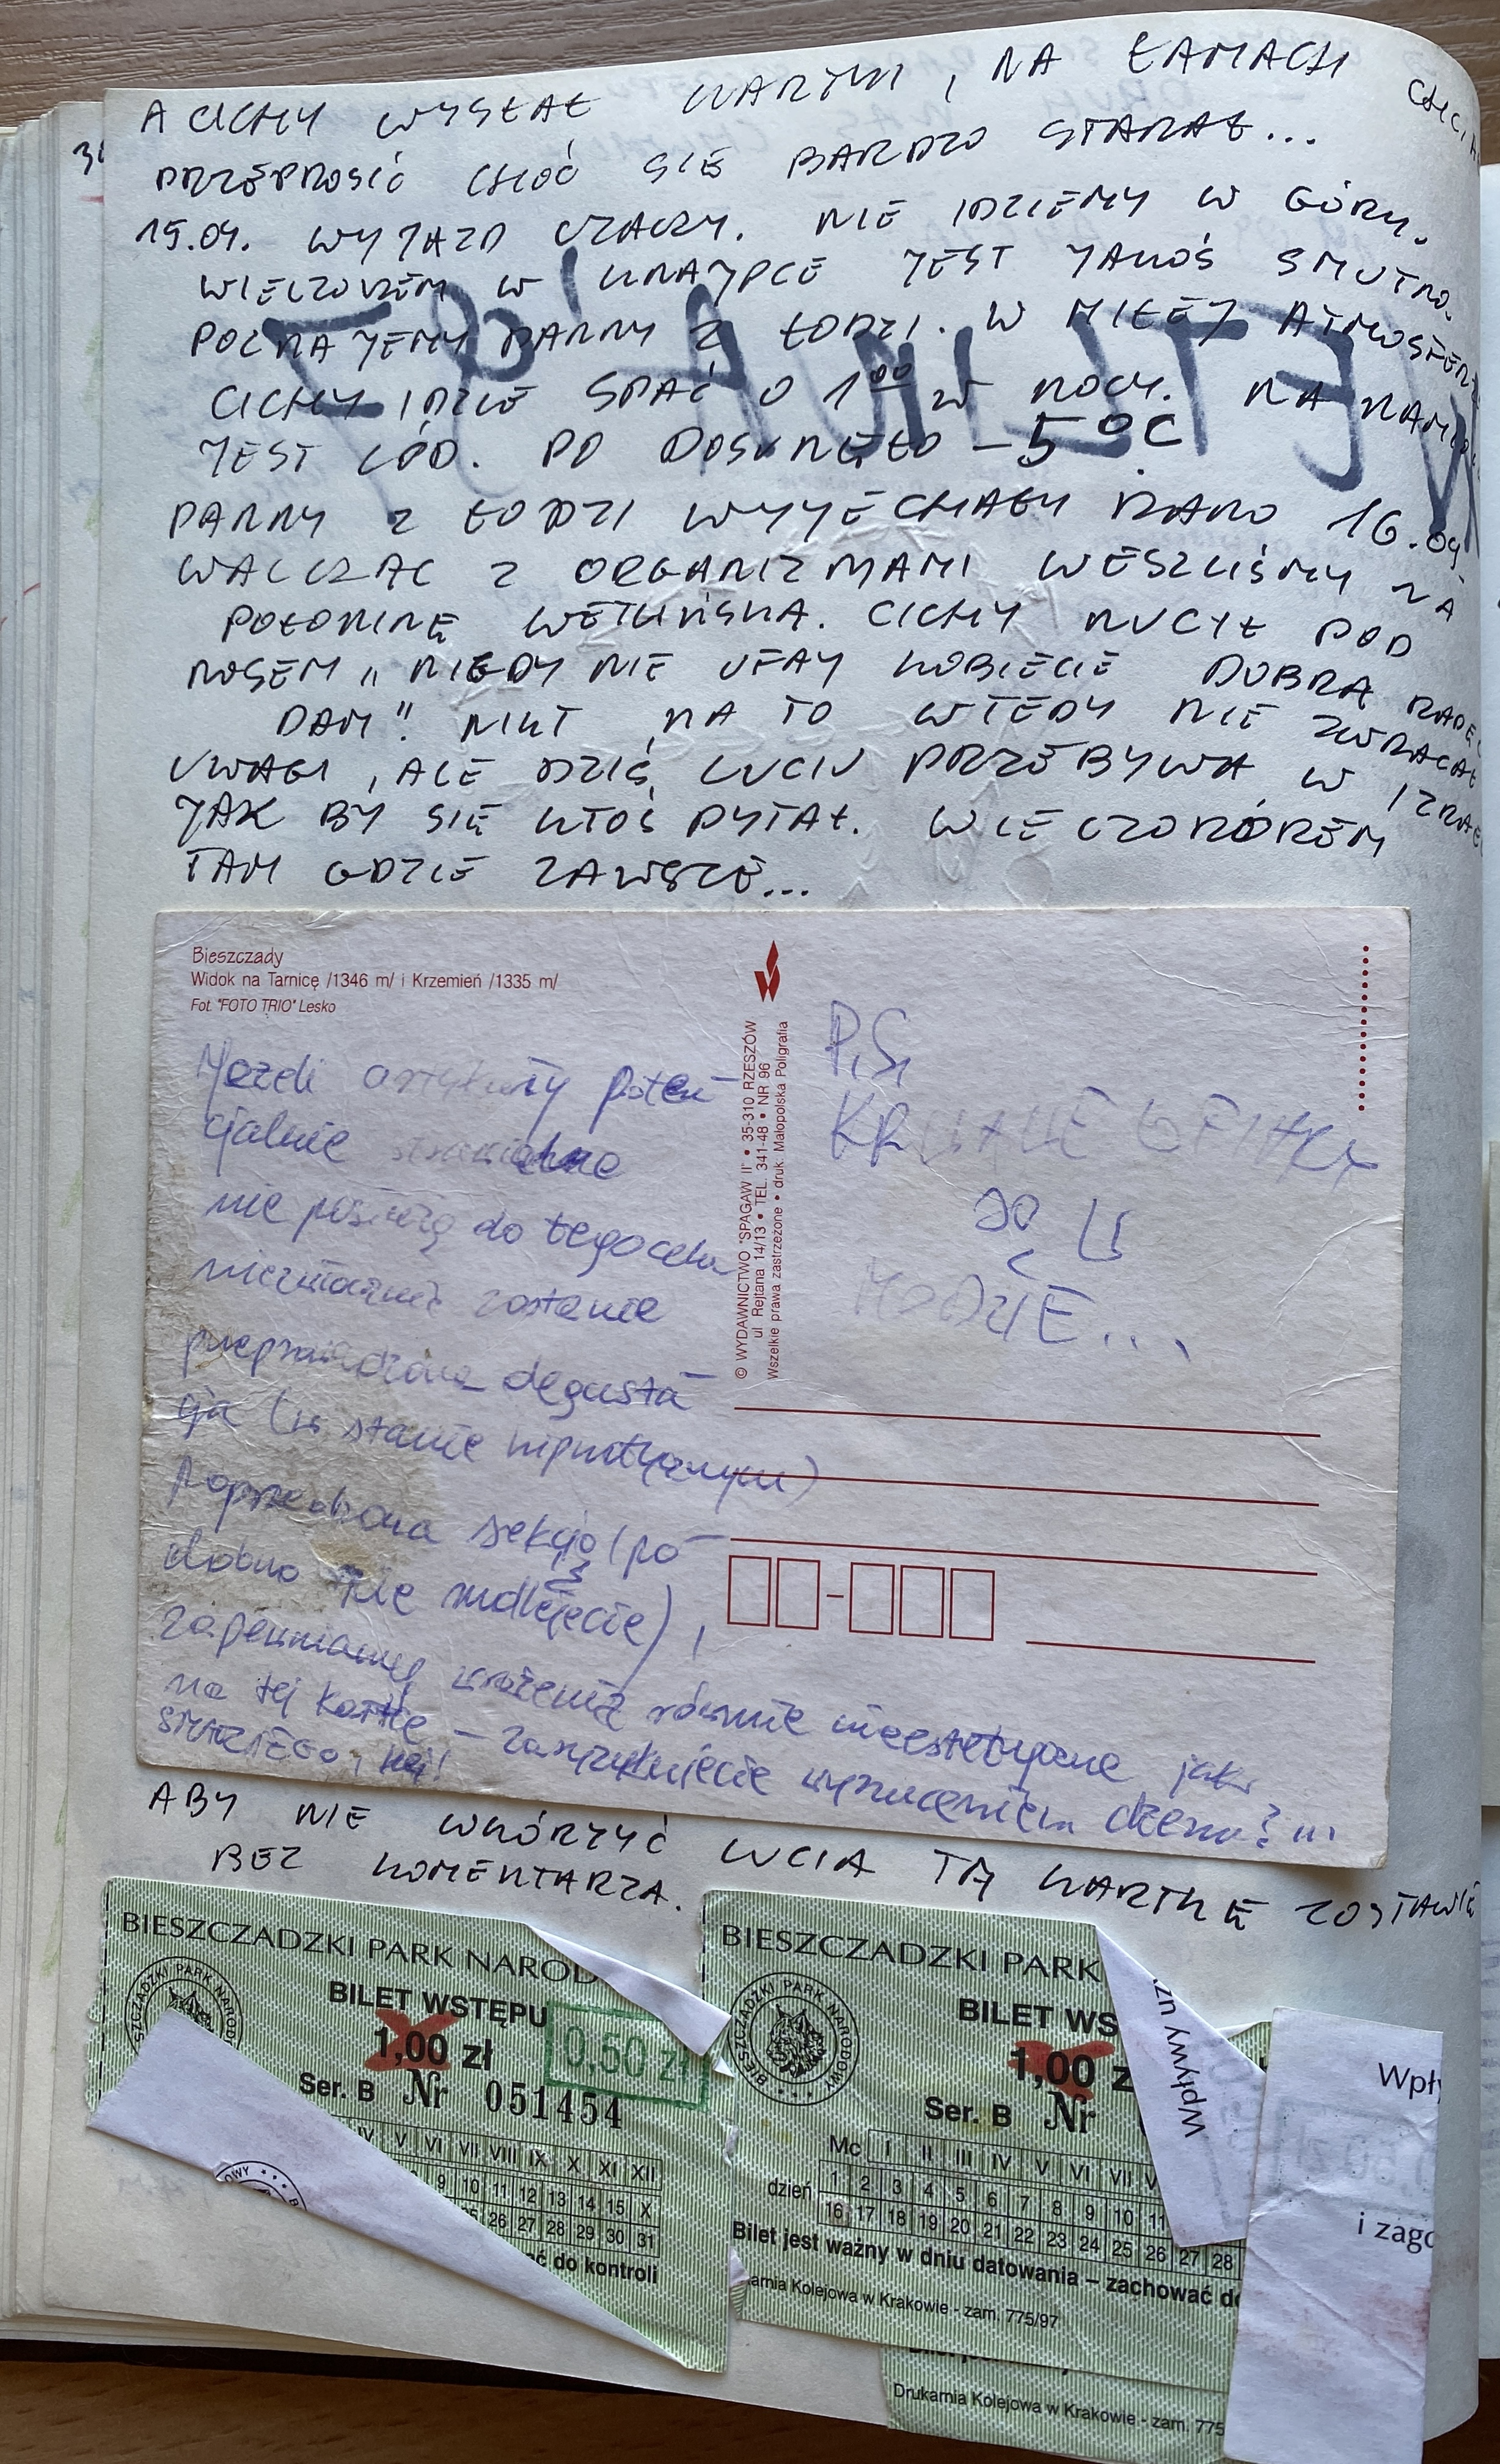 A CICHY WYSŁAŁ KARTKI, NA ŁAMACH
PRZEPROSIĆ CHOĆ SIĘ BARDZO STARAŁ...
15.04. WYJAZD CZACZY. NIE IDZIEMY W GÓRY.
WIECZOREM W KNAJPCE JEST JAKOŚ SMUTNO.
POZNAJEMY PANNY Z ŁODZI. W MIŁEJ ATMOSFERZE
CICHY IDZIE SPAĆ O 1⁰⁰ W NOCY. NA
JEST LÓD. PO DOSUNĘŁO -5°C
PANNY Z ŁODZI WYJECHAŁY RANO 16.04
WALCZĄC Z ORGANIZMAMI WESZLIŚMY NA
POŁONINĘ WETLIŃSKĄ. CICHY NUCIŁ POD
NOSEM „NIGDY NIE UFAJ KOBIECIE DOBRĄ RADĘ CI
DAM". NIKT NA TO WTEDY NIE ZWRACAŁ
UWAGI, ALE DZIŚ LUCIU PRZEBYWA W IZRAELU
JAK BY SIĘ KTOŚ PYTAŁ. WIECZOROREM
TAM GDZIE ZAWSZE...
Bieszczady
Widok na Tarnicę /1346 m/ i Krzemień /1335 m/
Fot. "FOTO TRIO" Lesko
© WYDAWNICTWO "SPAGAW II" • 35-310 RZESZÓW
ul. Rejtana 14/13 • TEL. 341-48 • NR 96
Wszelkie prawa zastrzeżone • druk. Małopolska Poligrafia
Jeżeli artykuły poten-
cjalnie
nie posłużą do tego celu
nieznacznie zostanie
przeprowadzona degusta-
cja (w stanie hipnotycznym)
Poprzedzona sekcją (po-
dobno nie mdlejecie),
zapewniamy wrażenia równie nieestetyczne jak
na tej kartce – zaszrzyknięcie wyrzuceniem dżemu? !!!
P.S.
SĄ
MODNE...
ABY NIE WKÓRZYĆ LUCIA TĄ KARTKĘ ZOSTAWIĘ
BEZ KOMENTARZA.
BIESZCZADZKI PARK NAROD
BILET WSTĘPU
1,00 zł
0,50 zł
Ser. B Nr 051454
IV V VI VII VIII IX X XI XII
9 10 11 12 13 14 15 X
26 27 28 29 30 31
do kontroli
BIESZCZADZKI PARK
BIESZCZADZKI PARK NARODOWY
BILET WS
1,00 z
Ser. B Nr
Mc I II III IV V VI VII
dzień 1 2 3 4 5 6 7 8 9 10 11
16 17 18 19 20 21 22 23 24 25 26 27 28
Bilet jest ważny w dniu datowania – zachować do
arnia Kolejowa w Krakowie - zam. 775/97
Drukarnia Kolejowa w Krakowie - zam. 775
Wpływy uzy
Wpły
i zago